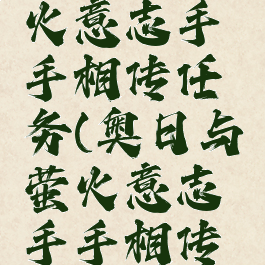 火意志手
手相传任
务(奥日与
萤火意志
手手相传